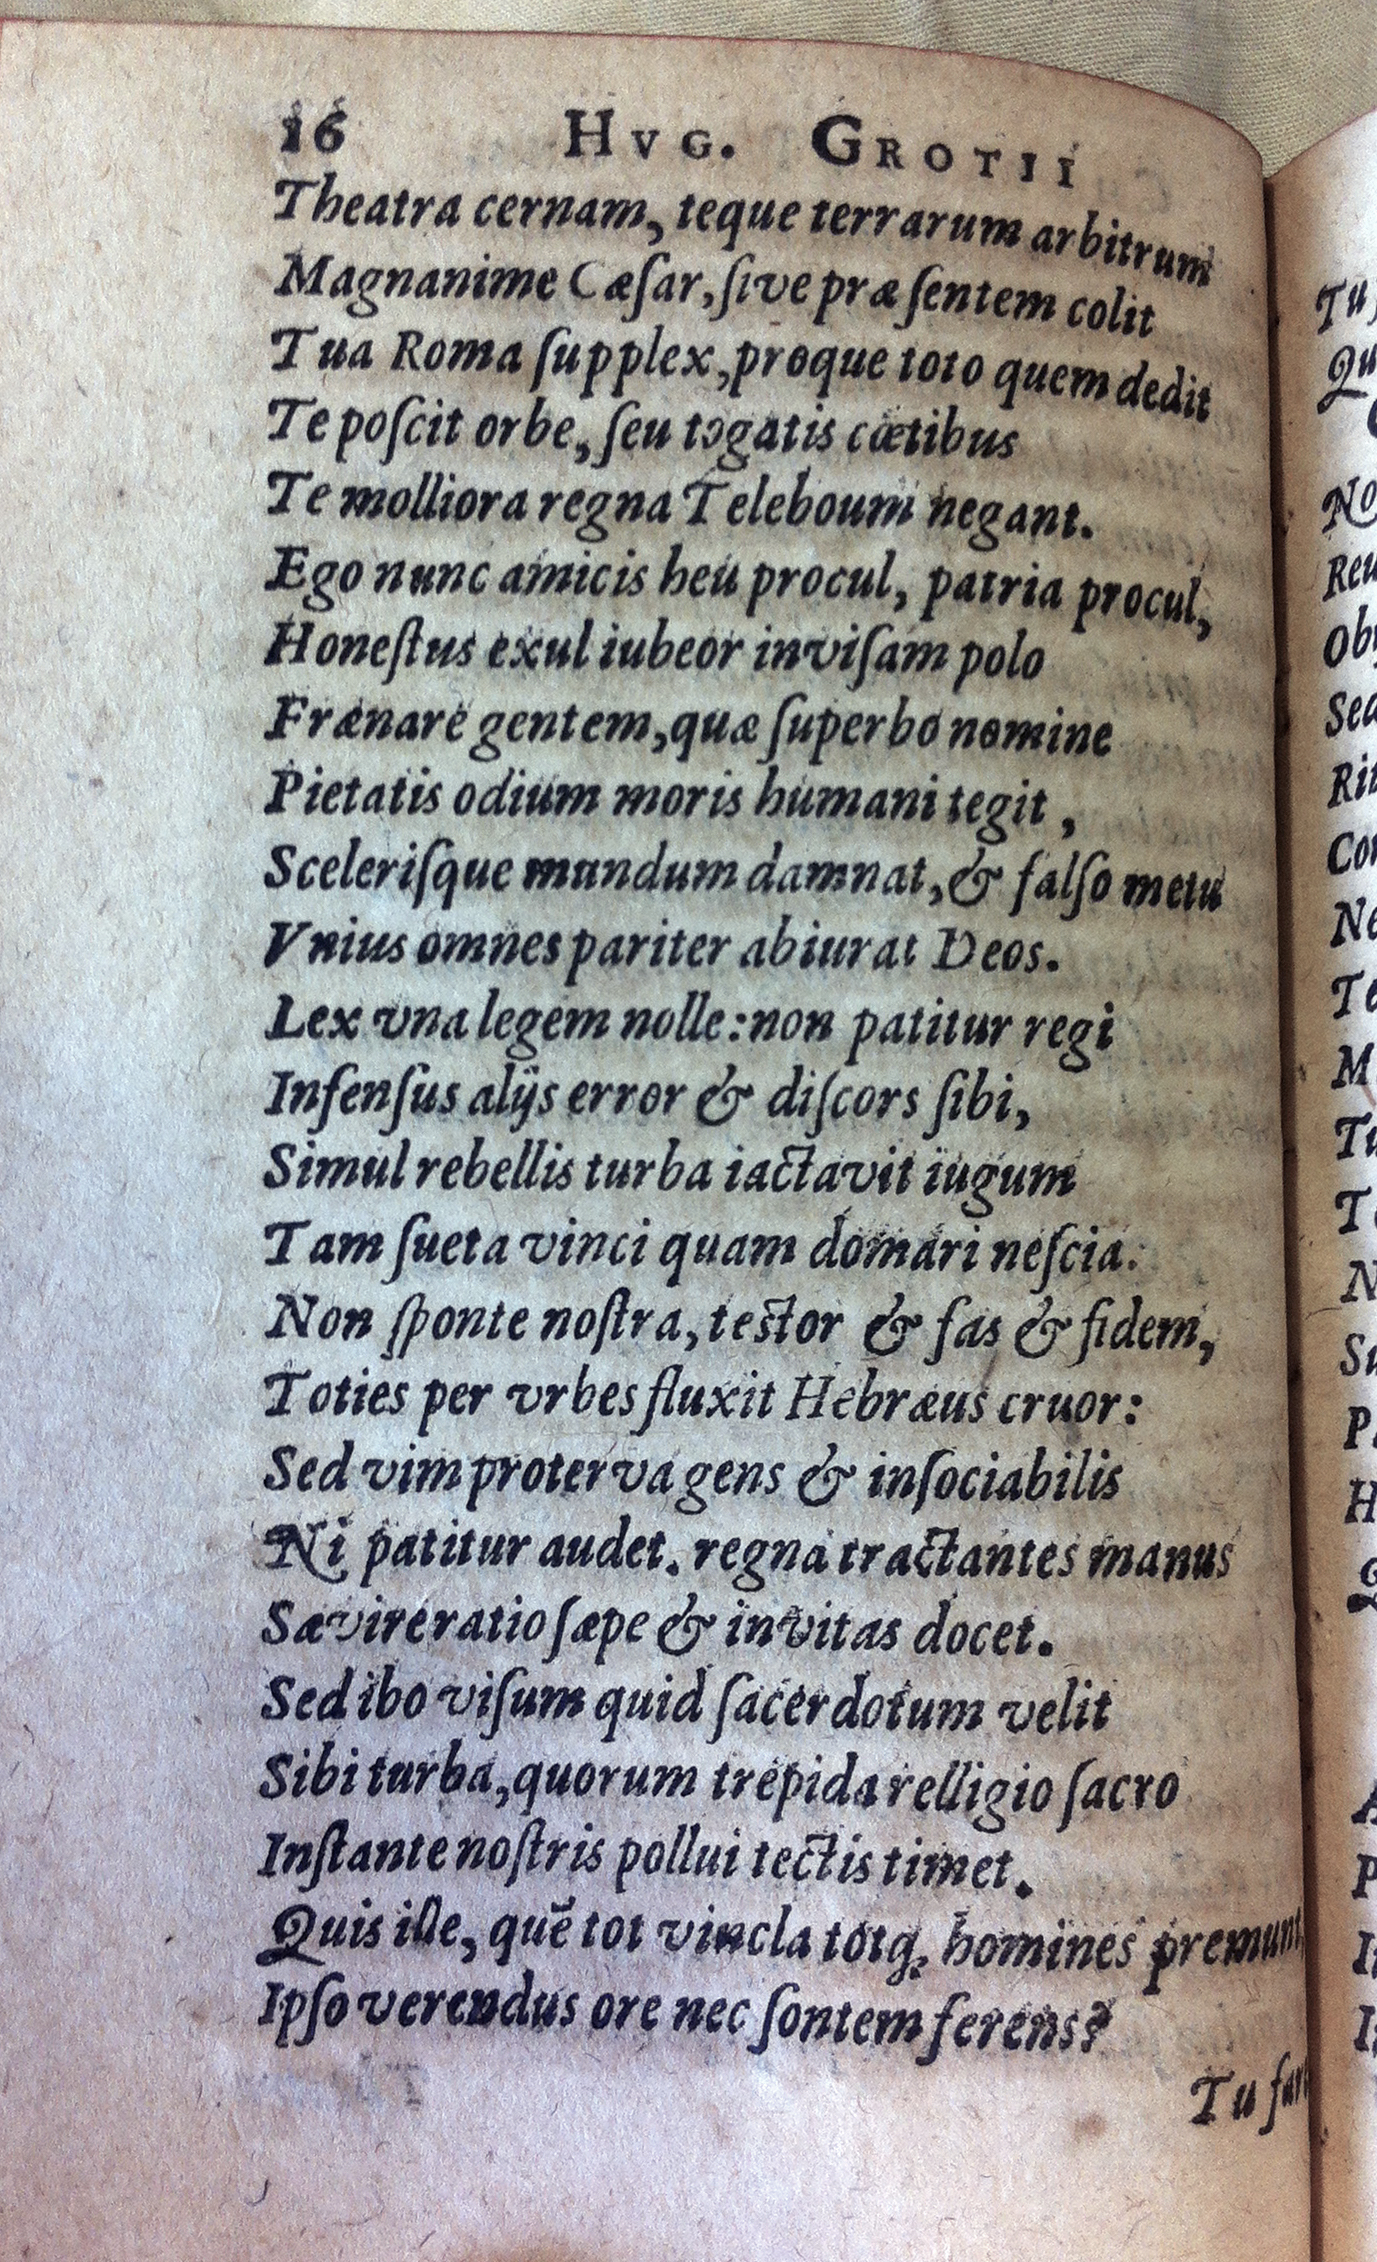 16 HVG. GROTII
Theatra cernam, teque terrarum arbitrum
Magnanime Cæſar, ſive præſentem colit
Tua Roma ſupplex, proque toto quem dedit
Te poſcit orbe, ſeu togatis cœtibus
Te molliora regna Teleboum negant.
Ego nunc amicis heu procul, patria procul,
Honeſtus exul iubeor inviſam polo
Frænare gentem, quæ ſuperbo nomine
Pietatis odium moris humani tegit,
Sceleriſque mundum damnat, & falſo metu
Vnius omnes pariter abiurat Deos.
Lex vna legem nolle: non patitur regi
Infenſus alijs error & diſcors ſibi,
Simul rebellis turba iactavit iugum
Tam ſueta vinci quam domari neſcia.
Non ſponte noſtra, teſtor & fas & fidem,
Toties per vrbes fluxit Hebræus cruor:
Sed vim proterva gens & inſociabilis
Ni patitur audet. regna tractantes manus
Sævire ratio ſæpe & invitas docet.
Sed ibo viſum quid ſacerdotum velit
Sibi turba, quorum trepida relligio ſacro
Inſtante noſtris pollui tectis timet.
Quis ille, quẽ tot vincla totq; homines premunt,
Ipſo verendus ore nec ſontem ferens?
Tu
Qu
No
Reu
Sed
Rit
Con
Ne
Te
M
Tu
N
Su
H